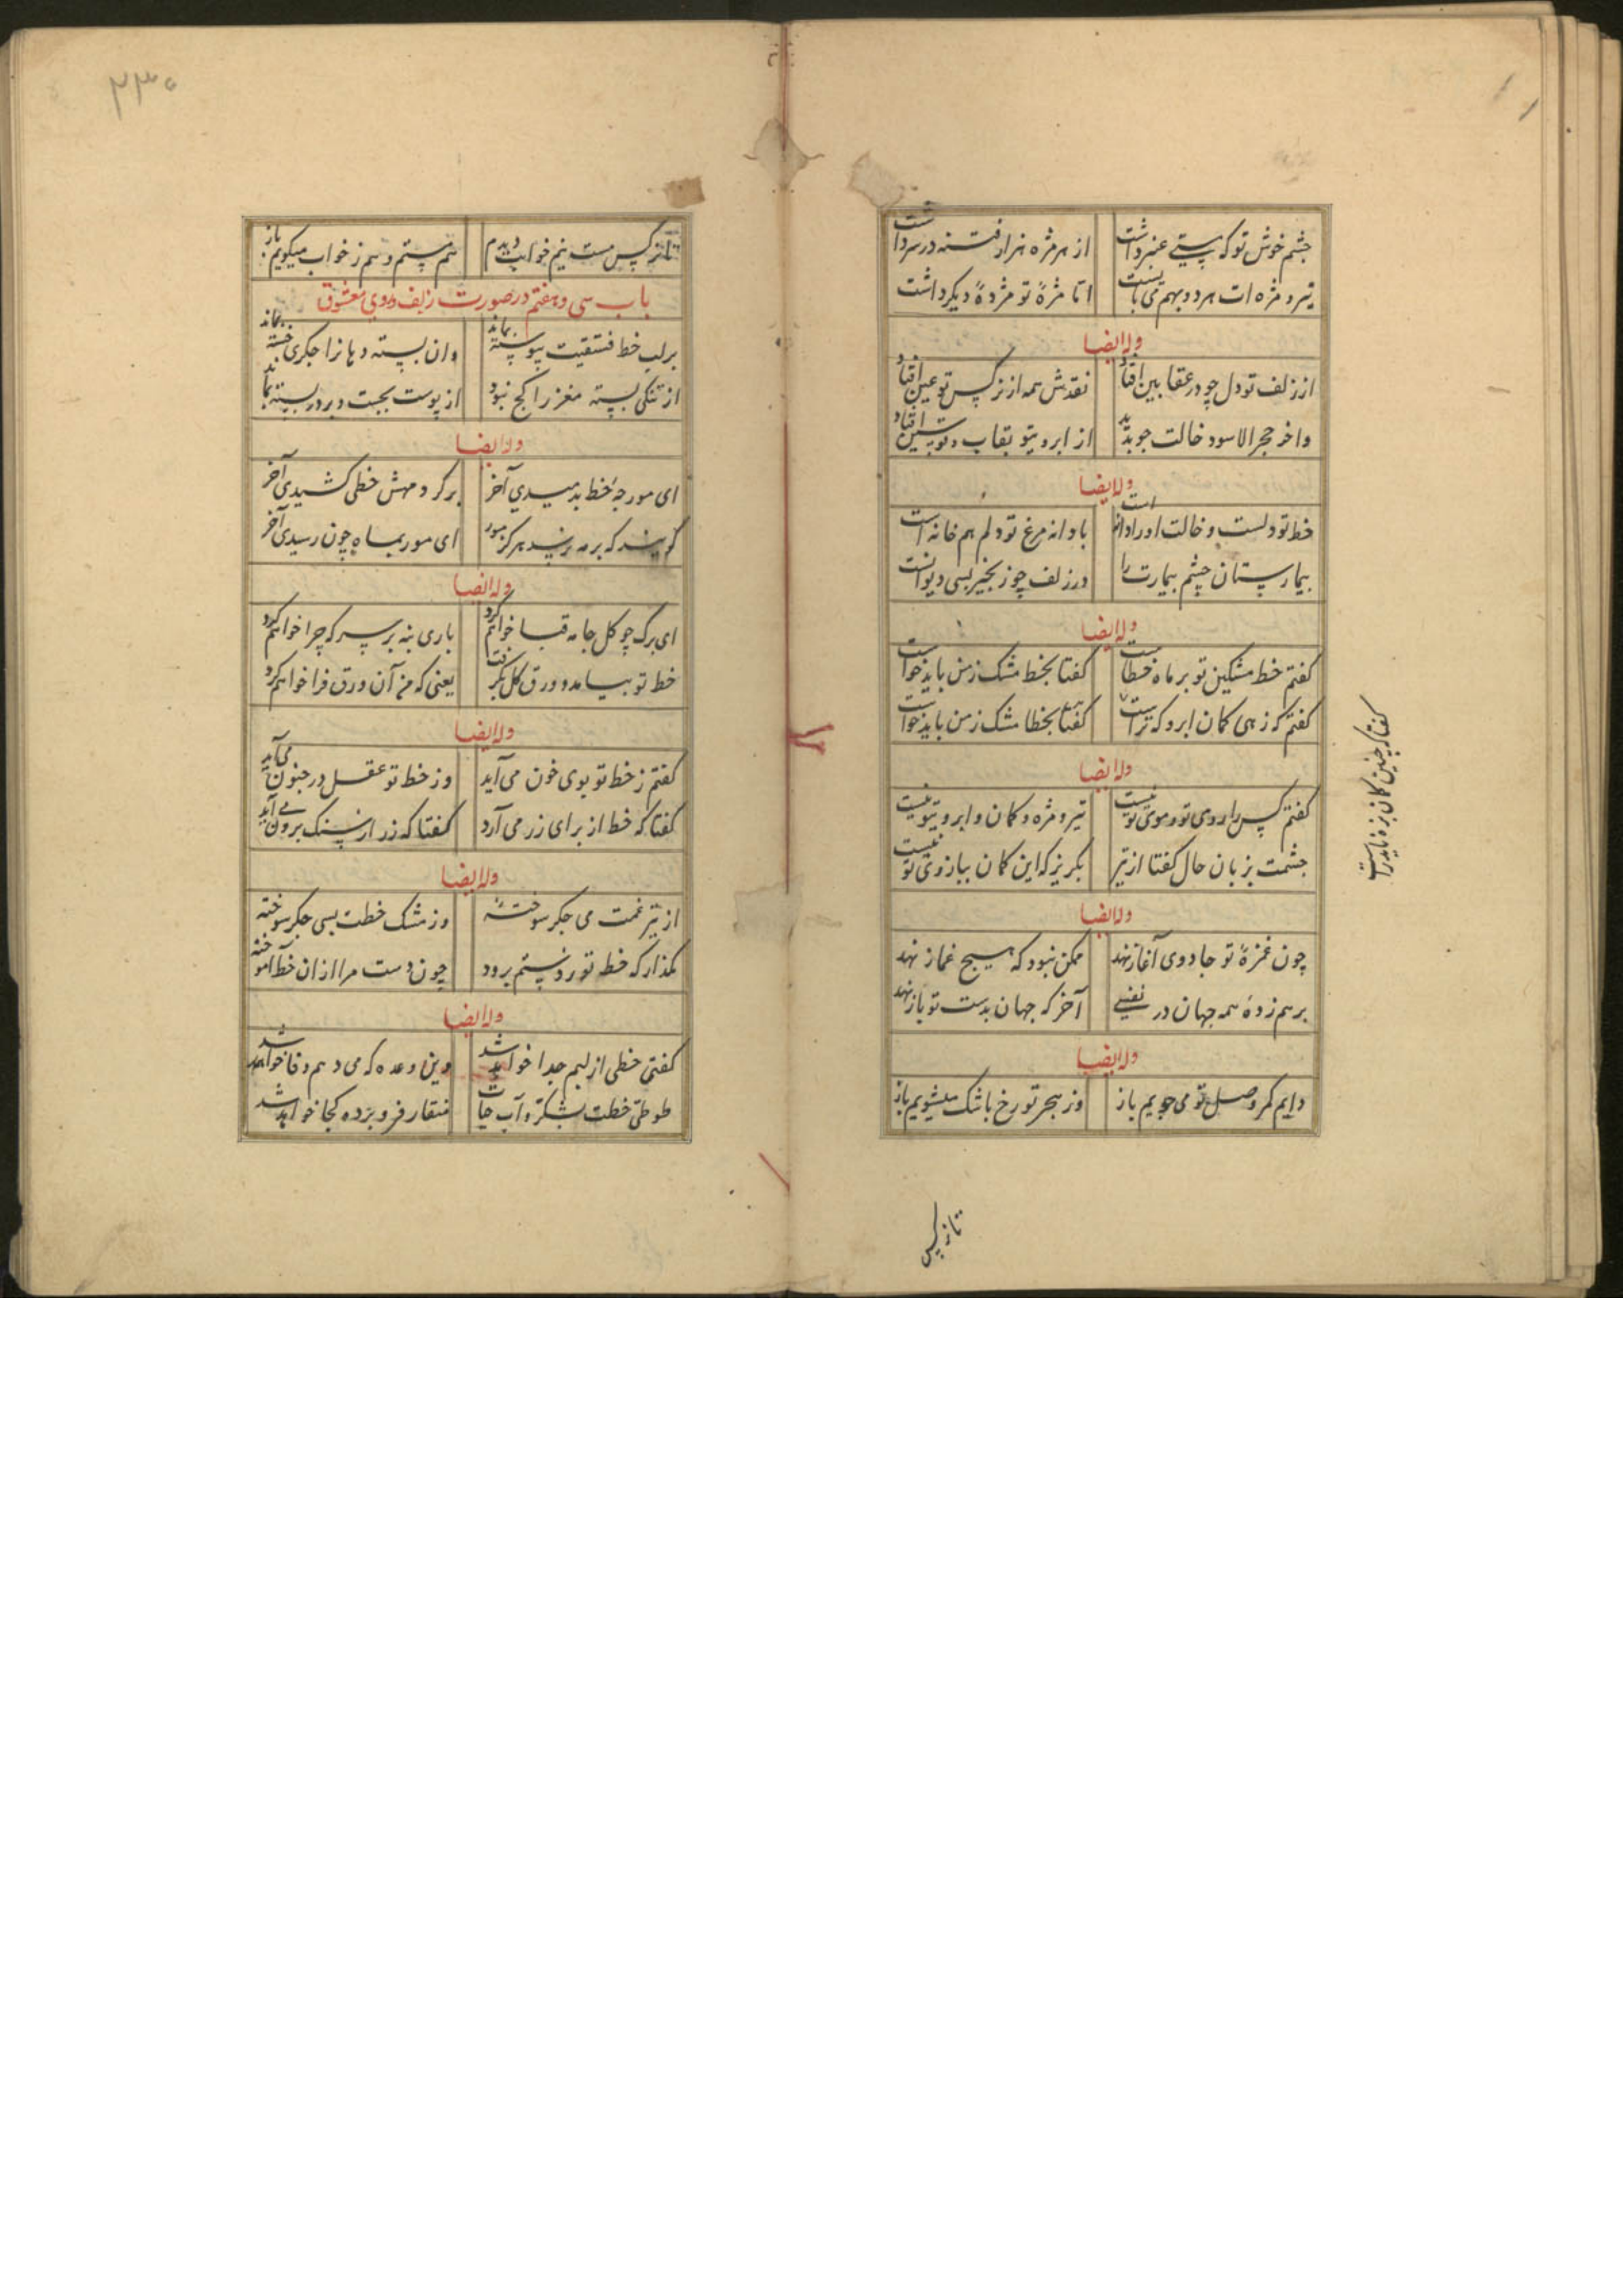 چشم خوش تو که پستی عنبر داشت از هر مژه هزار فتنه در سر داشت
تیر و مژه ات هر دو بهم می بایست اتا مژهٔ تو مژدهٔ دیکر داشت
وله ایضا
از زلف تو دل چو در عقابین افتاد نقدش همه از نرکس تو عین افتاد
واخر حجر الاسود خالت جو بدید از ابرو یتو بقاب قوسین افتاد
وله ایضا
خط تو دلست و خالت او را دانه است با دانه مرغ تو دلم هم خانه است
بیمارستان چشم بیمارت را در زلف چو زنجیر بسی دیوانست
وله ایضا
کفتم خط مشکین تو بر ماه خطاست کفتا بخط مشک ز من باید خواست
کفتم که زهی کمان ابرو که تراست کفتا بخطا مشک ز من باید خواست
کفتا که چنین کمان بزه ناید راست
وله ایضا
کفتم کس را روی تو و موی تو نیست تیر و مژه و کمان و ابرو یتو نیست
جشمت بزبان حال کفتا از تیر بکریز که این کمان ببازوی تو نیست
وله ایضا
چون غمزهٔ تو جادوی آغاز نهد ممکن نبود که هیچ غماز نهد
برهم زدهٔ همه جهان در نفسی آخر که جهان بدست تو باز نهد
وله ایضا
دایم کمر وصل تو می جویم باز وز هجر تو رخ باشک میشویم باز
تا نرکس
۲۳۰
تا نرکس مست نیم خوابت دیدم هم مستم و هم ز خواب میکویم باز
باب سی و هفتم در صورت زلف و روی معشوق
بر لب خط فستقیت پیوسته بماند وان پسته دهانرا جکری خسته بماند
از تنکی پسته مغز را کنج نبود از پوست بجست و بر در پسته بماند
وله ایضا
ای مورجهٔ خط بدمیدی آخر بر کرد مهش خطی کشیدی آخر
کویند که بر مه نرسد هرکز مور ای مور بماه چون رسیدی آخر
وله ایضا
ای برک چو کل جامه قبا خواهم کرد باری بنه بر سر که چرا خواهم کرد
خط تو بیامد و ورق کل بکرفت یعنی که من آن ورق فرا خواهم کرد
وله ایضا
کفتم ز خط تو بوی خون می آید وز خط تو عقل در جنون می آید
کفتا که خط از برای زر می آرد کفتا که زر از سنک برون می آید
وله ایضا
از تیر غمت می جکر سوخته وز مشک خطت بسی جکر سوخته
مکذار که خط تو ز دستم برود چون دست مرا از ان خط آموخته
وله ایضا
کفتی خطی از لبم جدا خواهد شد وین وعده که می دهم وفا خواهد شد
طوطی خطت بشکر و آب حیات منقار فرو برده کجا خواهد شد